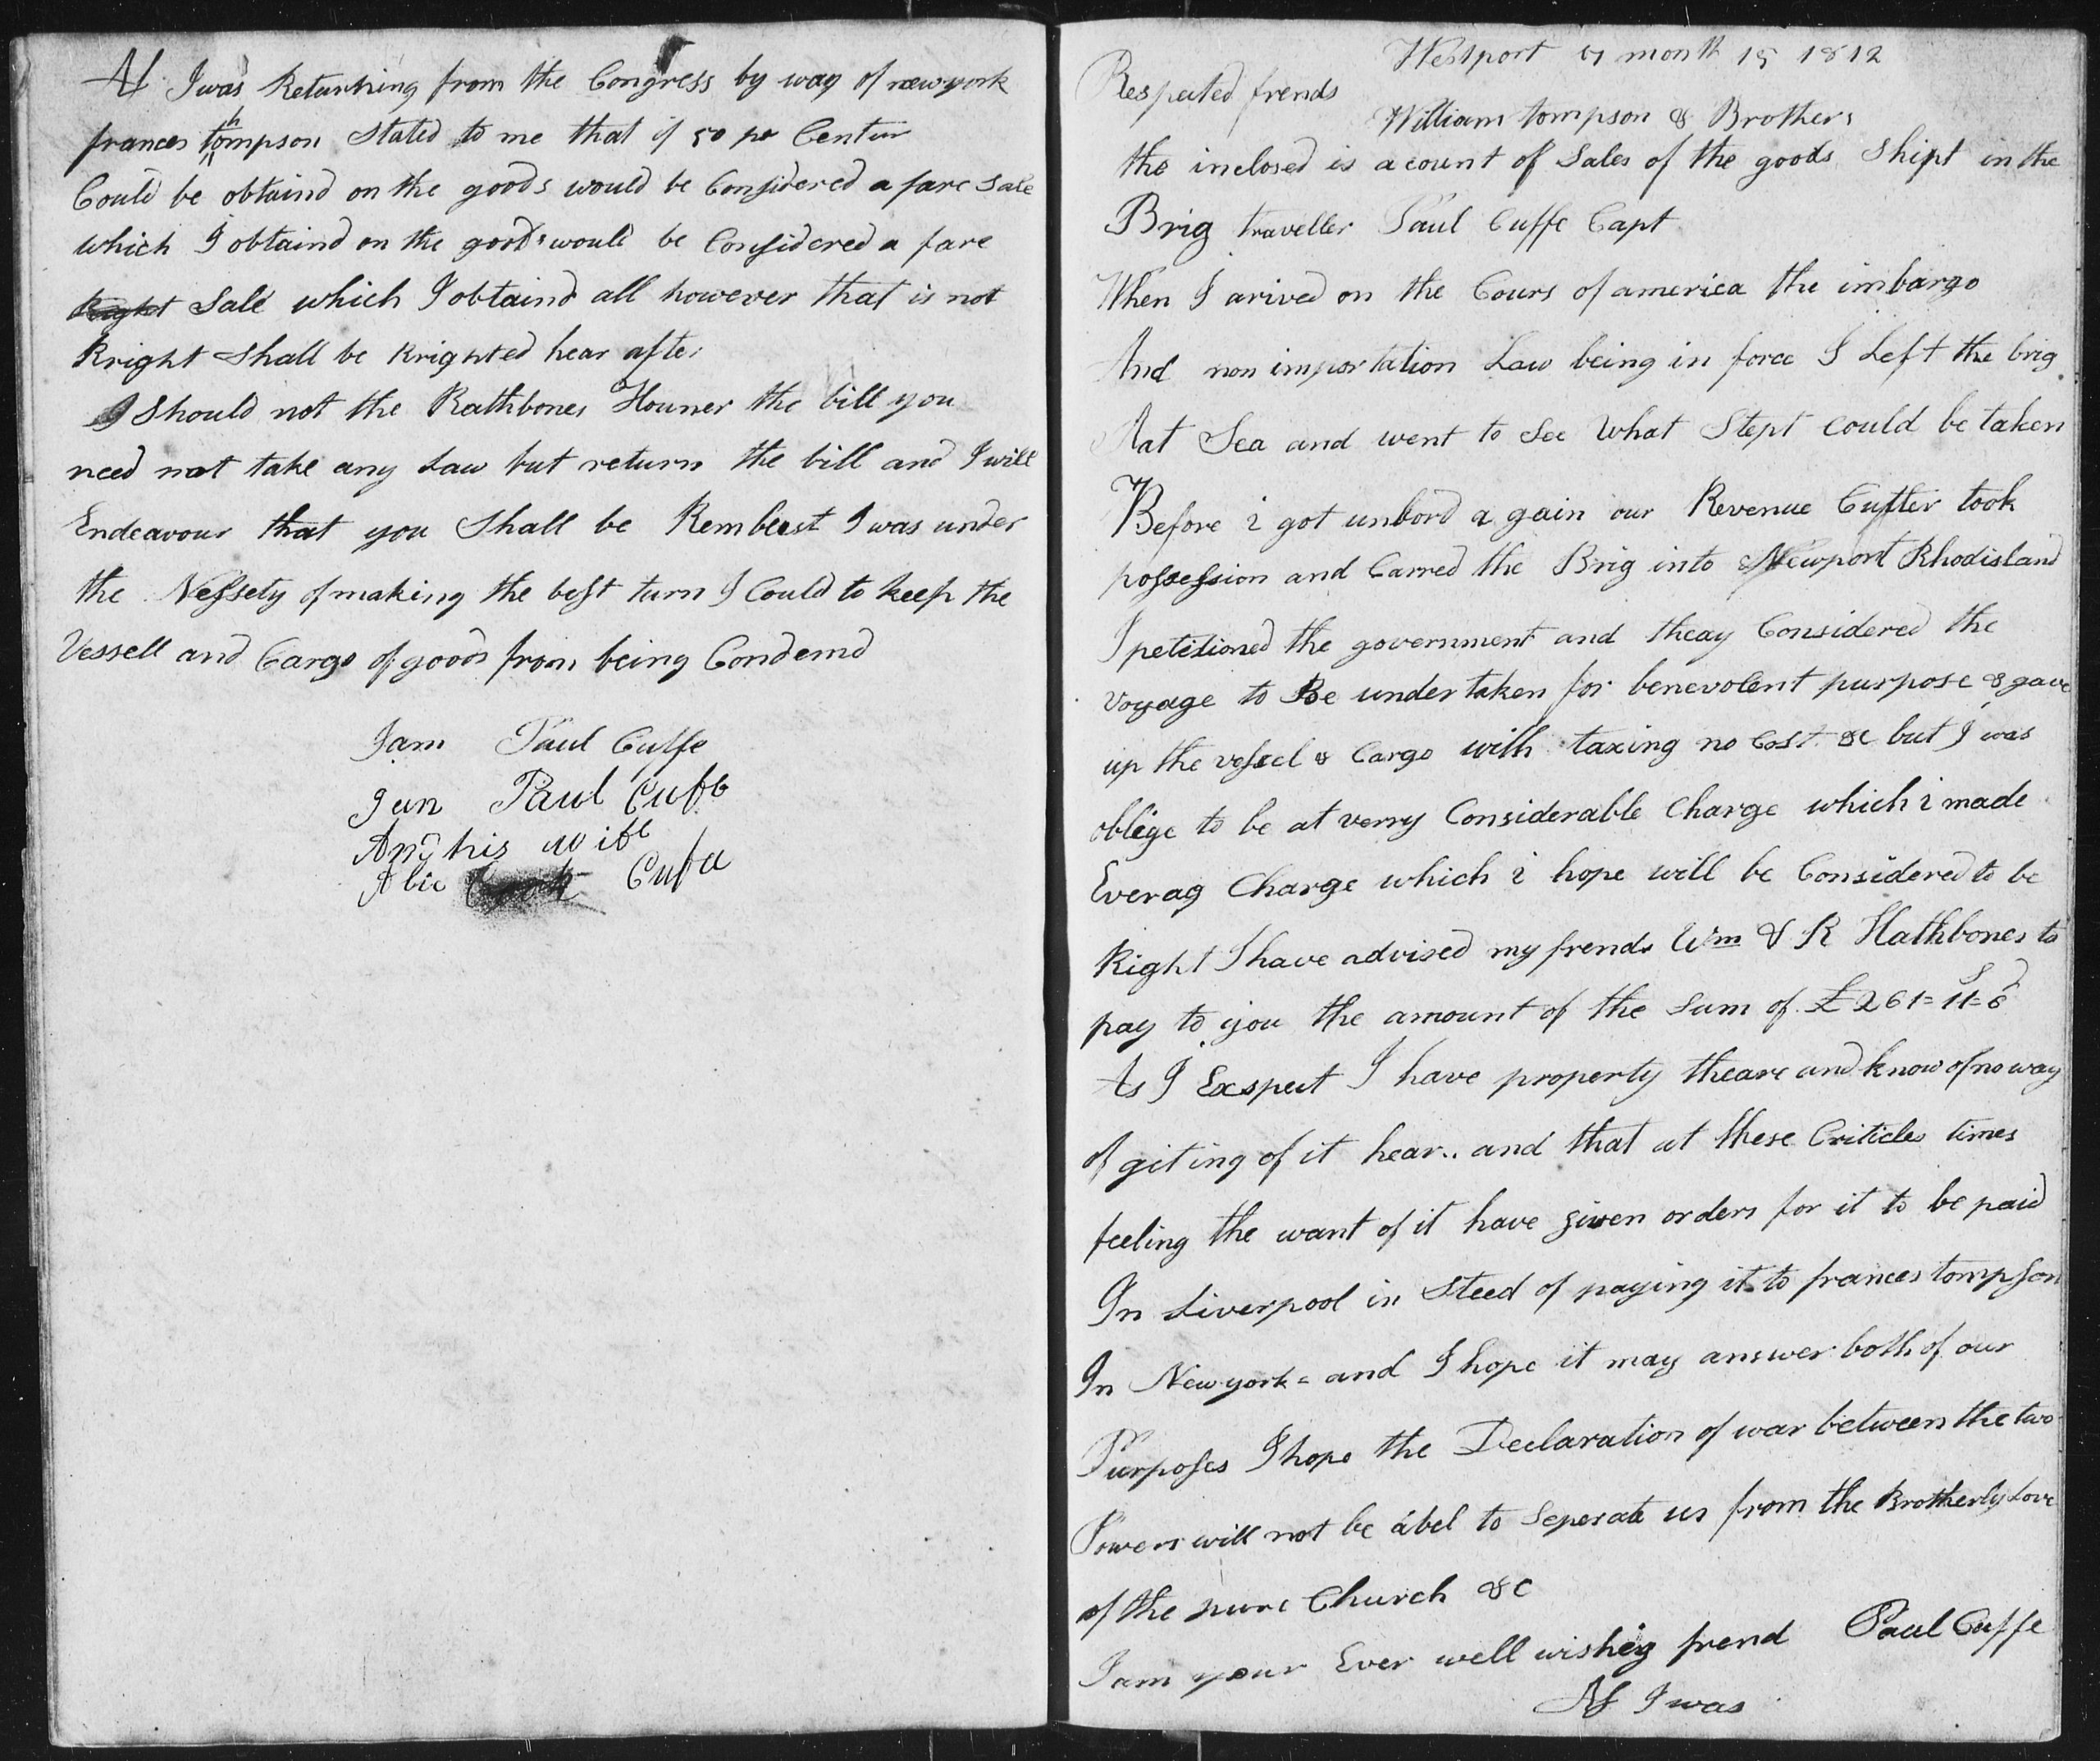 As I was Returning from the Congress by way of newyork
frances thompson Stated to me that if 50 pr Centur
Could be obtaind on the goods would be Considered a fare Sale
which I obtaind on the goods would be Considered a fare
Right Sale which I obtaind all however that is not
Kright Shall be Krighted hear after
I Should not the Rathbones Houner the bill you
need not take any Law but return the bill and I will
Endeavour that you Shall be Rembust I was under
the Nessety of making the best turn I Could to keep the
Vessell and Cargo of goods from being Condemd
I am Paul Cuffe
I am Paul Cuffe
And his wife
Alie Cufe
Westport 7 month 15 1812
Respected frends
William tompson & Brothers
the inclosed is a count of Sales of the goods Shipt in the
Brig traveller Paul Cuffe Capt
When I arived on the Cours of america the imbargo
And non importation Law being in force I Left the brig
Aat Sea and went to See What Stept could be taken
Before i got unbord a gain our Revenue Cutter took
possession and Carred the Brig into Newport Rhodisland
I petitioned the government and theay Considered the
voyage to Be under taken for benevolent purpose & gave
up the vessel & Cargo with taxing no Cost &c but I was
oblige to be at verry Considerable Charge which i made
Everag Charge which i hope will be Considered to be
Right I have advised my frends Wm & R Hathbones to
pay to you the amount of the Sum of £261=11=6
As I Exspect I have property theare and know of no way
of giting of it hear.. and that at these Criticles times
feeling the want of it have given orders for it to be paid
In Liverpool in Steed of paying it to frances tompson
In Newyork = and I hope it may answer both of our
Purposes I hope the Declaration of war between the two
Powers will not be abel to Seperate us from the Brotherly Love
of the pure Church &c
I am your Ever well wisheig frend Paul Cuffe
As I was